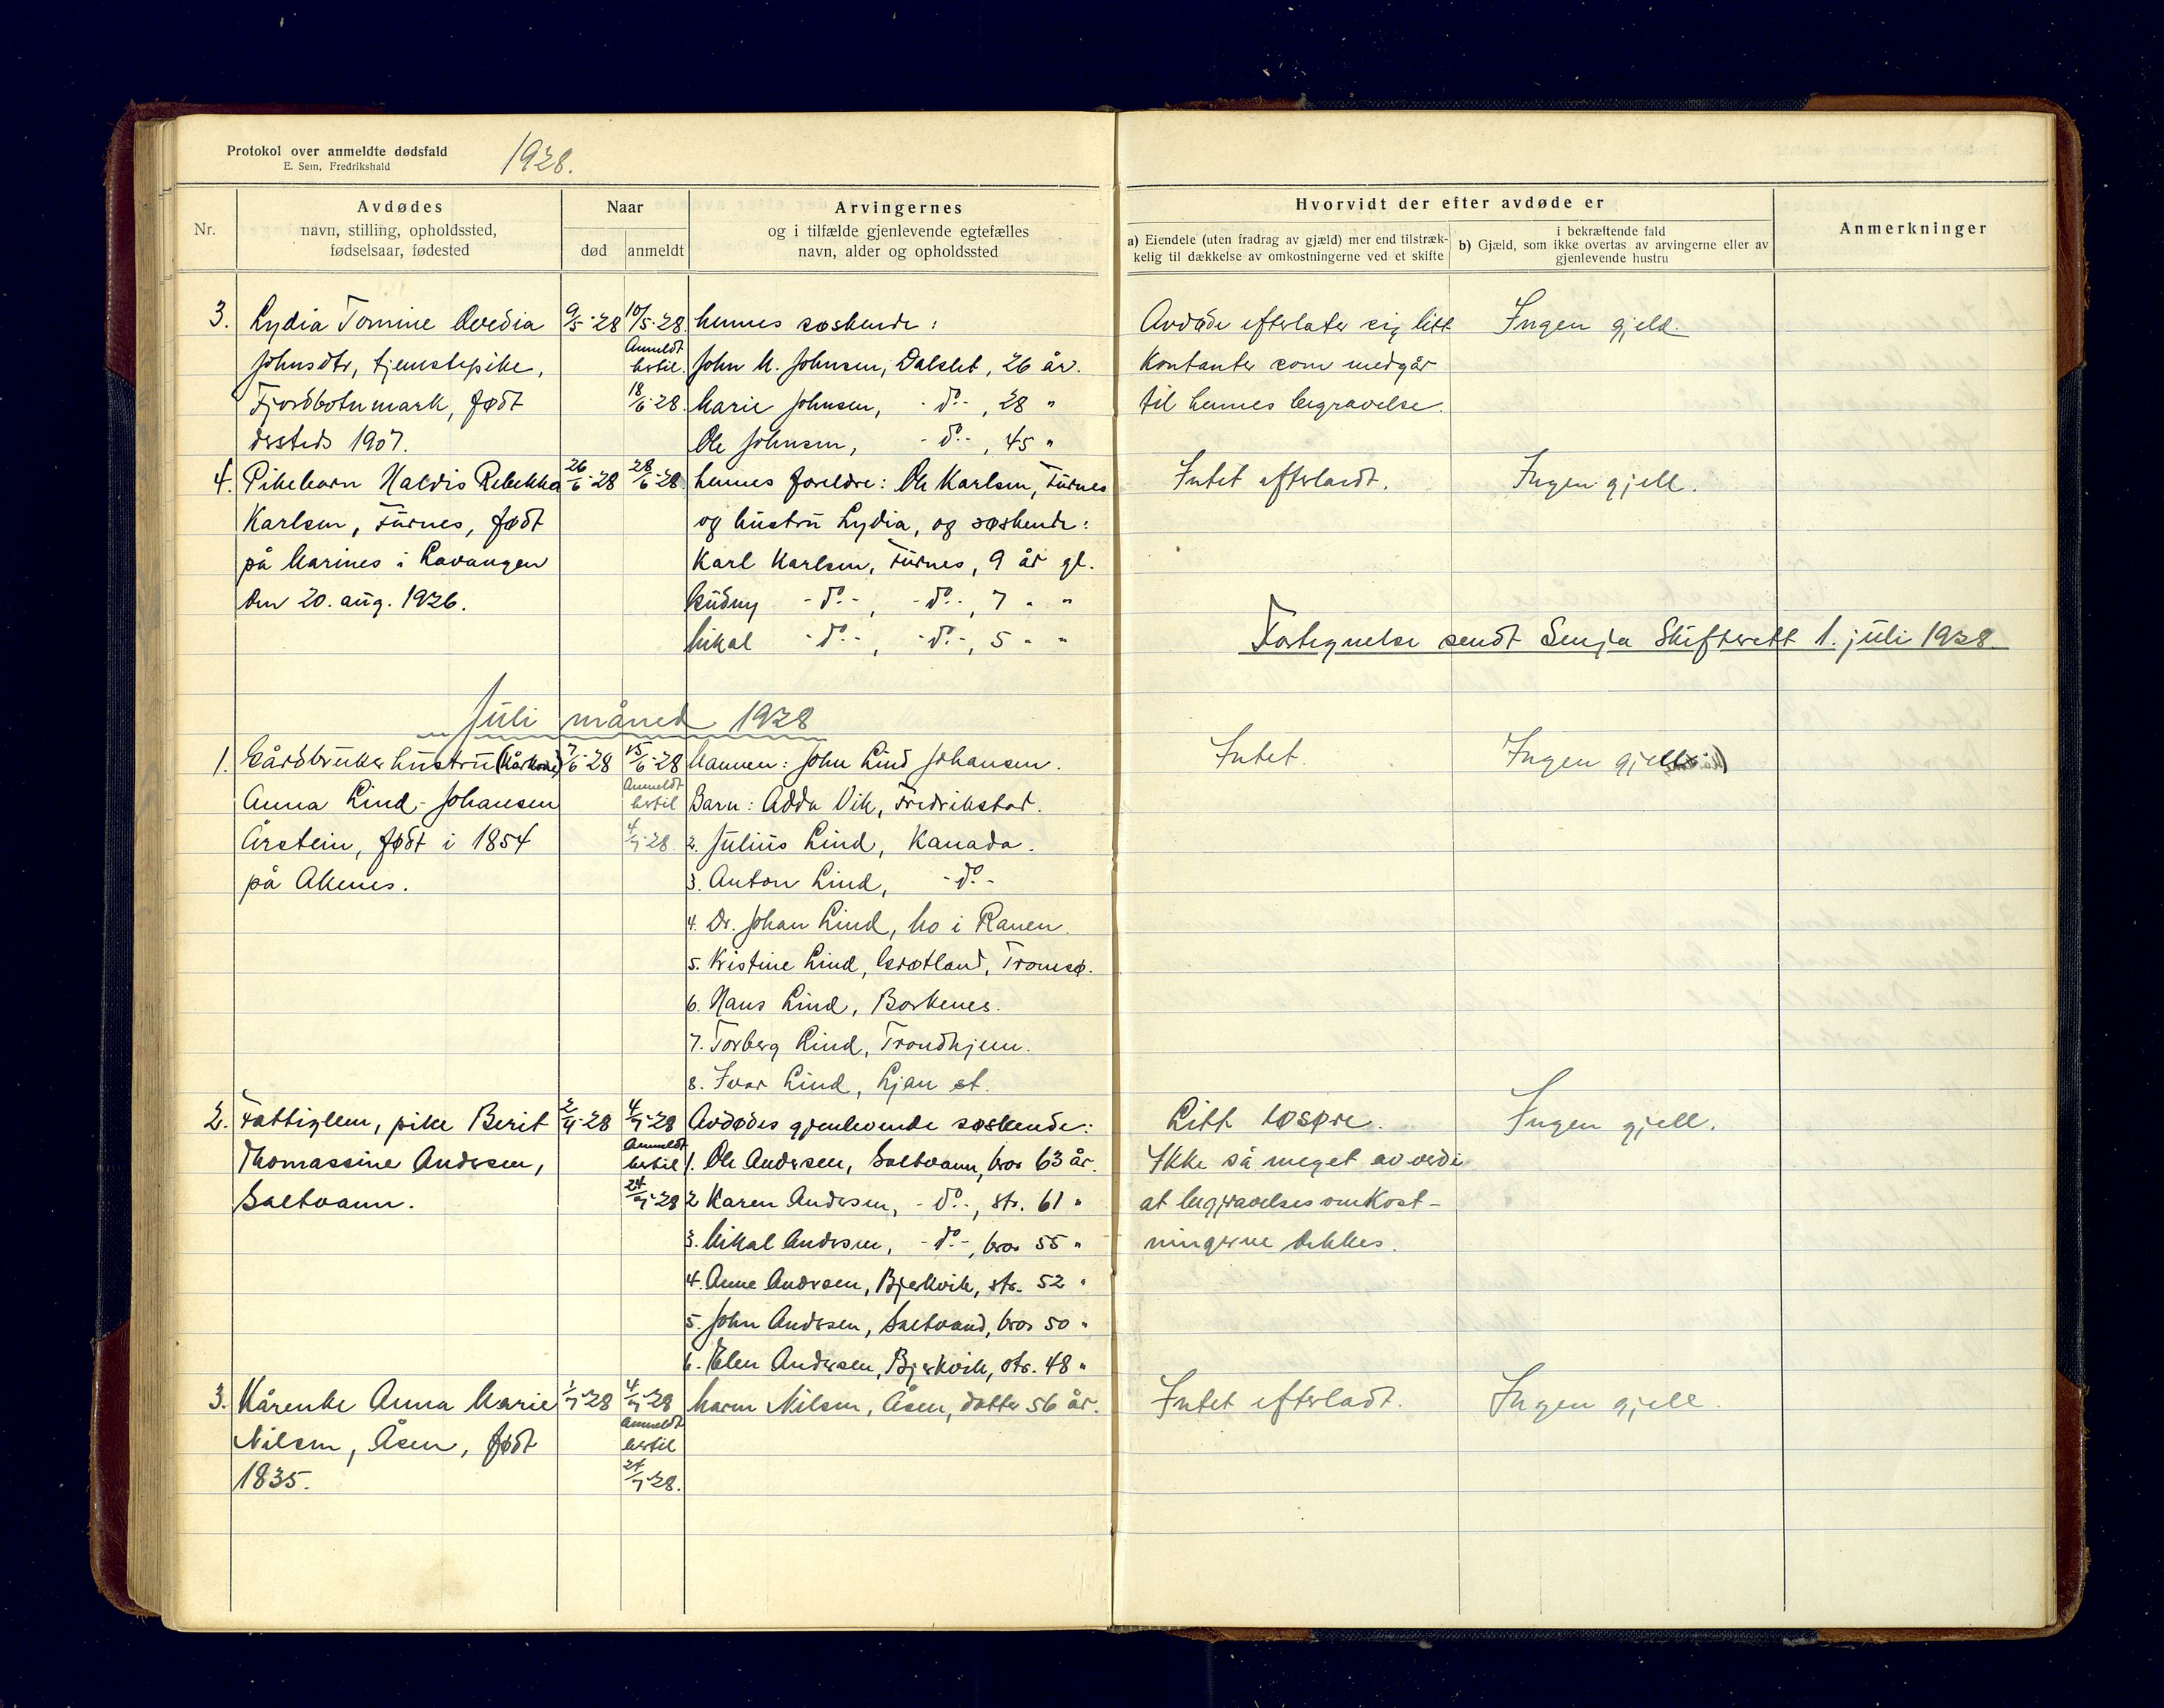 Protokol over anmeldte dødsfald
E. Sem, Fredrikshald
1928.
Nr.
Avdødes
navn, stilling, opholdssted,
fødselsaar, fødested
Naar
død
anmeldt
Arvingernes
og i tilfælde gjenlevende egtefælles
navn, alder og opholdssted
Hvorvidt der efter avdøde er
a) Eiendele (uten fradrag av gjæld) mer end tilstræk-
kelig til dækkelse av omkostningerne ved et skifte
i bekræftende fald
b) Gjæld, som ikke overtas av arvingerne eller av
gjenlevende hustru
Anmerkninger
3. Lydia Tomine Ovedia 9/5-28 10/5-28. Hennes søskende: Avdøde efterlater sig litt Ingen gjeld.
Johnsdtr, tjenestepike, Anmeldt hertil. John M. Johnsen, Dalslet, 26 år. Kontanter som medgår
Fjordbotnmark, født 18/6-28. Marie Johnsen, - do -, 28 " til hennes begravelse.
dersteds 1907. Ole Johnsen, - do -, 45 "
4. Pikebarn Haldis Rebekka 26/6-28 28/6-28. Hennes foreldre: Ole Karlsen, Furnes Intet efterladt. Ingen gjell.
Karlsen, Furnes, født og hustru Lydia, og søskende:
på Marines i Lavangen Karl Karlsen, Furnes, 9 år gl.
den 20. aug. 1926. Gudny - do -, - do -, 7 " "
Mikal - do -, - do -, 5 " "
Fortegnelse sendt Senja Skifterett 1. juli 1928.
Juli måned 1928
1. Gårdbruker hustru (Kårkone) 7/6-28 15/6-28 Mannen: John Lind Johansen. Intet. Ingen gjell
Anna Lind-Johansen Anmeldt hertil Barn: Adda Vik, Fredrikstad.
Årstein, født i 1854 4/7-28. 2. Julius Lind, Kanada.
på Akenes. 3. Anton Lind, - do -
4. Dr. Johan Lind, Mo i Ranen.
5. Kristine Lind, Grøtland, Tromsø.
6. Hans Lind, Borkenes.
7. Torberg Lind, Trondhjem.
8. Ivar Lind, Ljan st.
2. Fattiglem, pike Berit 2/7-28 4/7-28 Avdødes gjenlevende søskende: Litt løsøre. Ingen gjell.
Thomassine Andersen, Anmeldt hertil 1. Ole Andersen, Saltvann, bror 63 år. Ikke så meget av verdi
Saltvann. 24/7-28 2 Karen Andersen, - do -, str. 61 " at begravelsesomkost-
3. Mikal Andersen, - do -, bror 55 " ningerne dekkes.
4. Anne Andersen, Bjerkvik, str. 52 "
5. John Andersen, Saltvand, bror 50 "
6. Elen Andersen, Bjerkvik, str. 48 "
3. Kårenke Anna Marie 1/7-28 4/7-28 Maren Nilsen, Åsen, datter 56 år. Intet efterladt. Ingen gjell.
Nilsen, Åsen, født Anmeldt hertil
1835. 24/7-28.